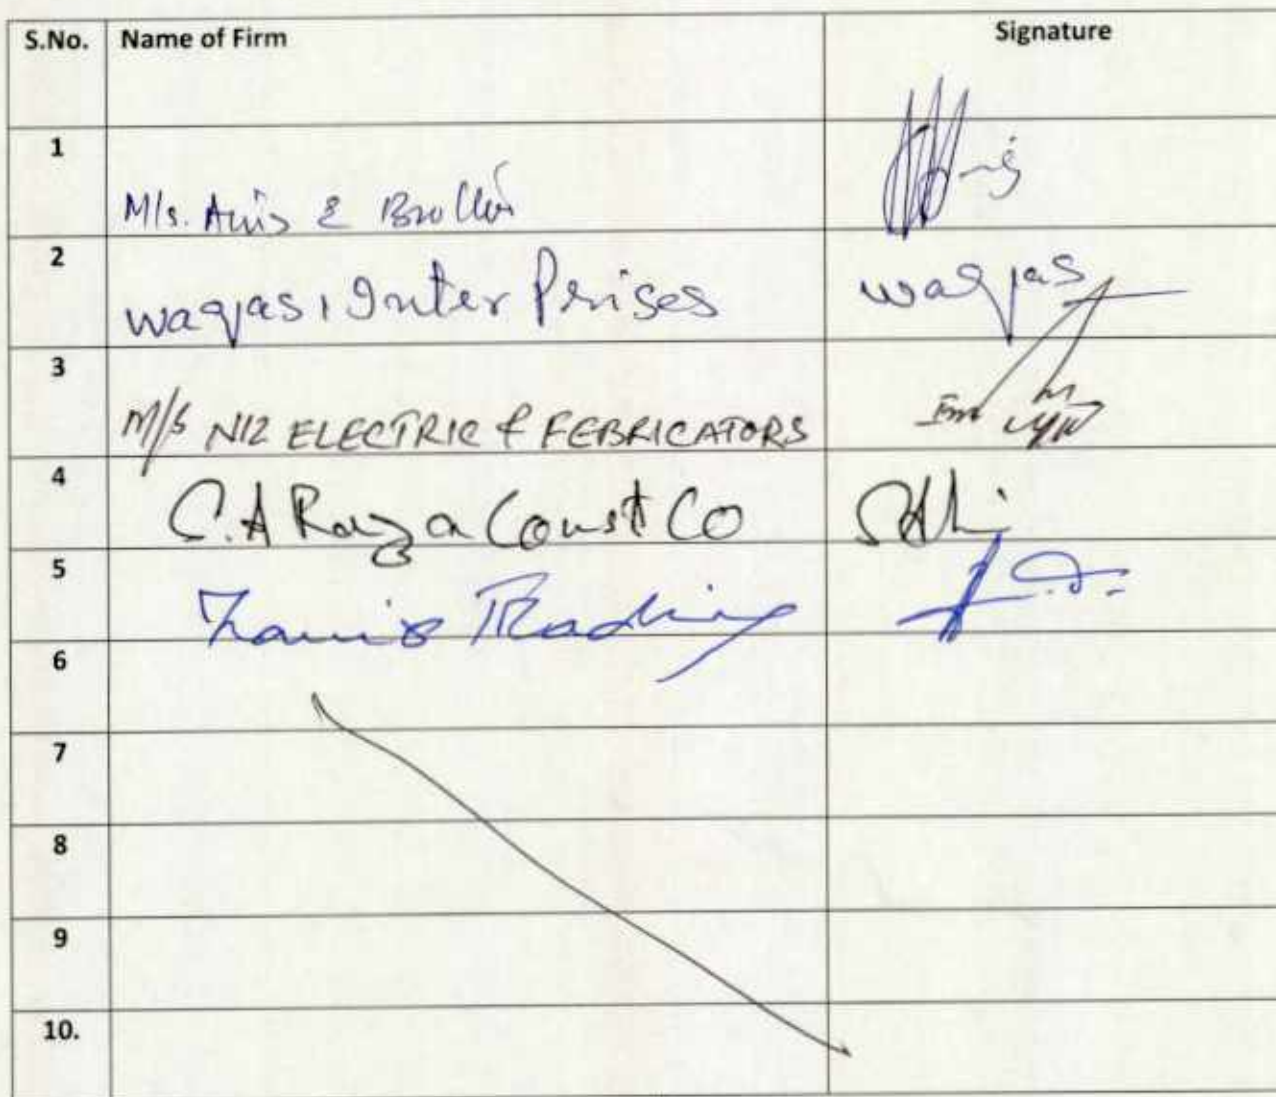 S.No. Name of Firm Signature
1 M/s. Anis & Brother
2 waqas, Inter Prises waqas
3 M/S NIZ ELECTRIC & FEBRICATORS
4 S.A Raza Const Co
5 Trading
6
7
8
9
10.